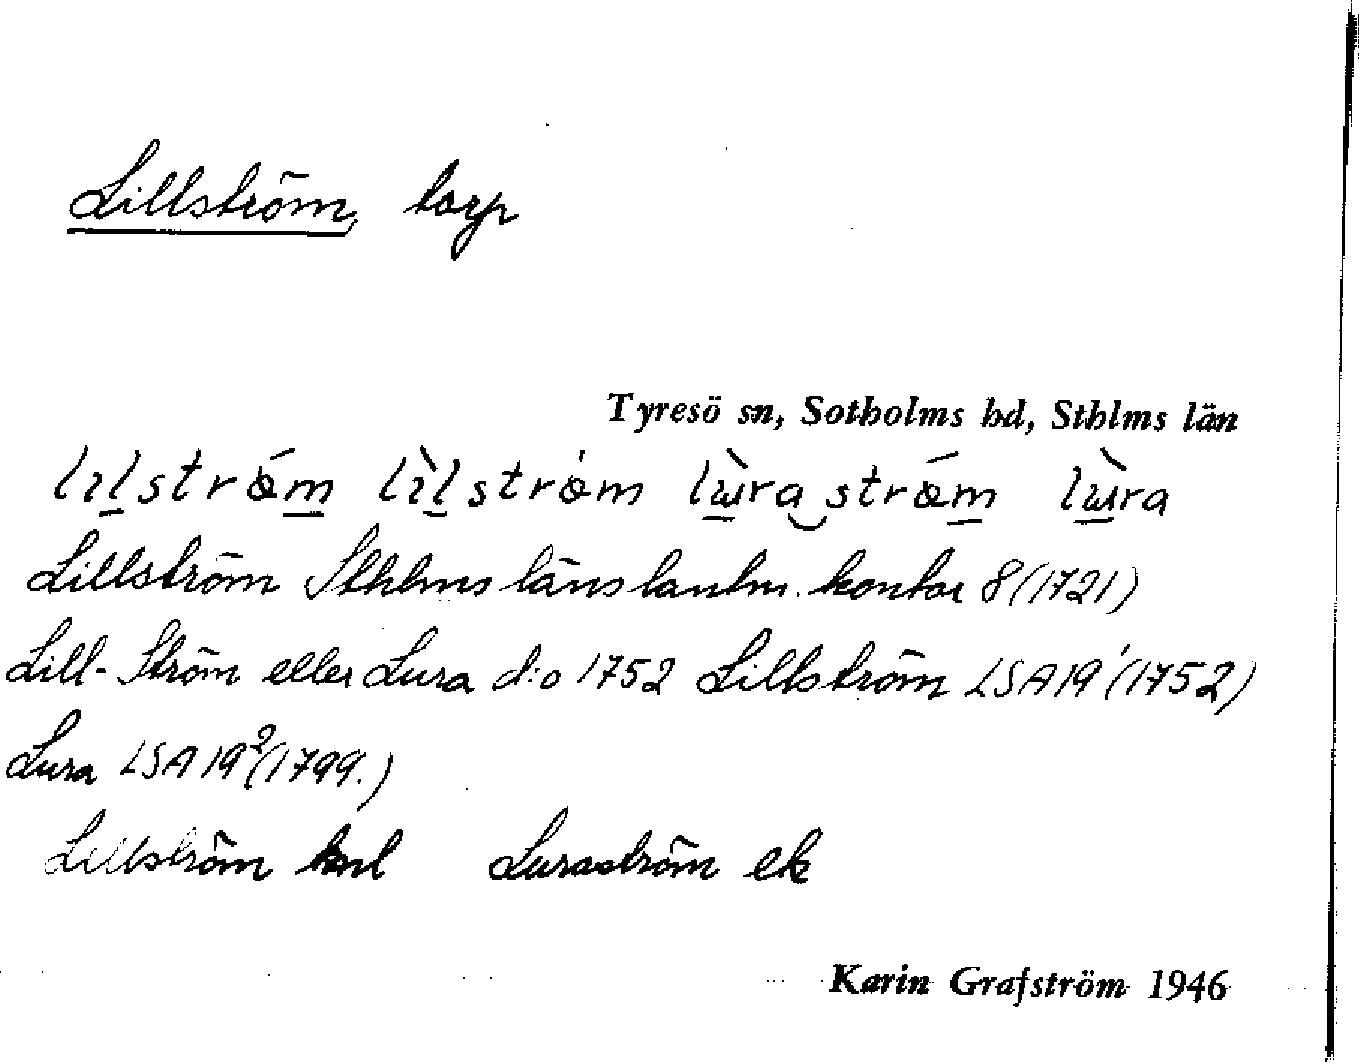 Lillström, torp
Tyresö sn, Sotholms hd, Sthlms län
lılstrǿm lı̀lstrøm lùra‿strǿm lùra
Lillström Sthlms läns lantm. kontor 8 (1721)
Lill-Ström eller Lura d:o 1752 Lillström LSA 19¹ (1752)
Lura LSA 19² (1799.)
Lillström Luraström ek
Karin Grafström 1946